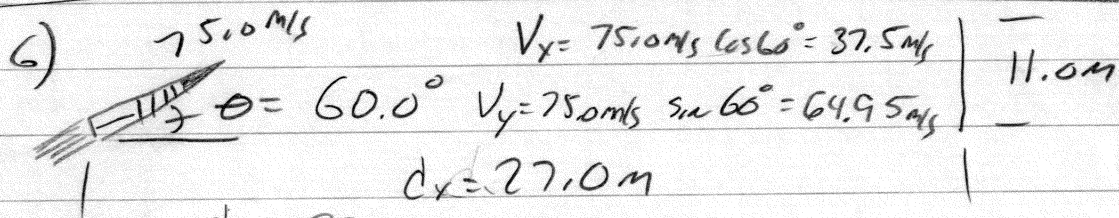 6) 75.0 m/s Vx = 75.0 m/s cos 60° = 37.5 m/s
11.0 m
θ = 60.0° Vy = 75.0 m/s sin 60° = 64.95 m/s
dx = 27.0 m